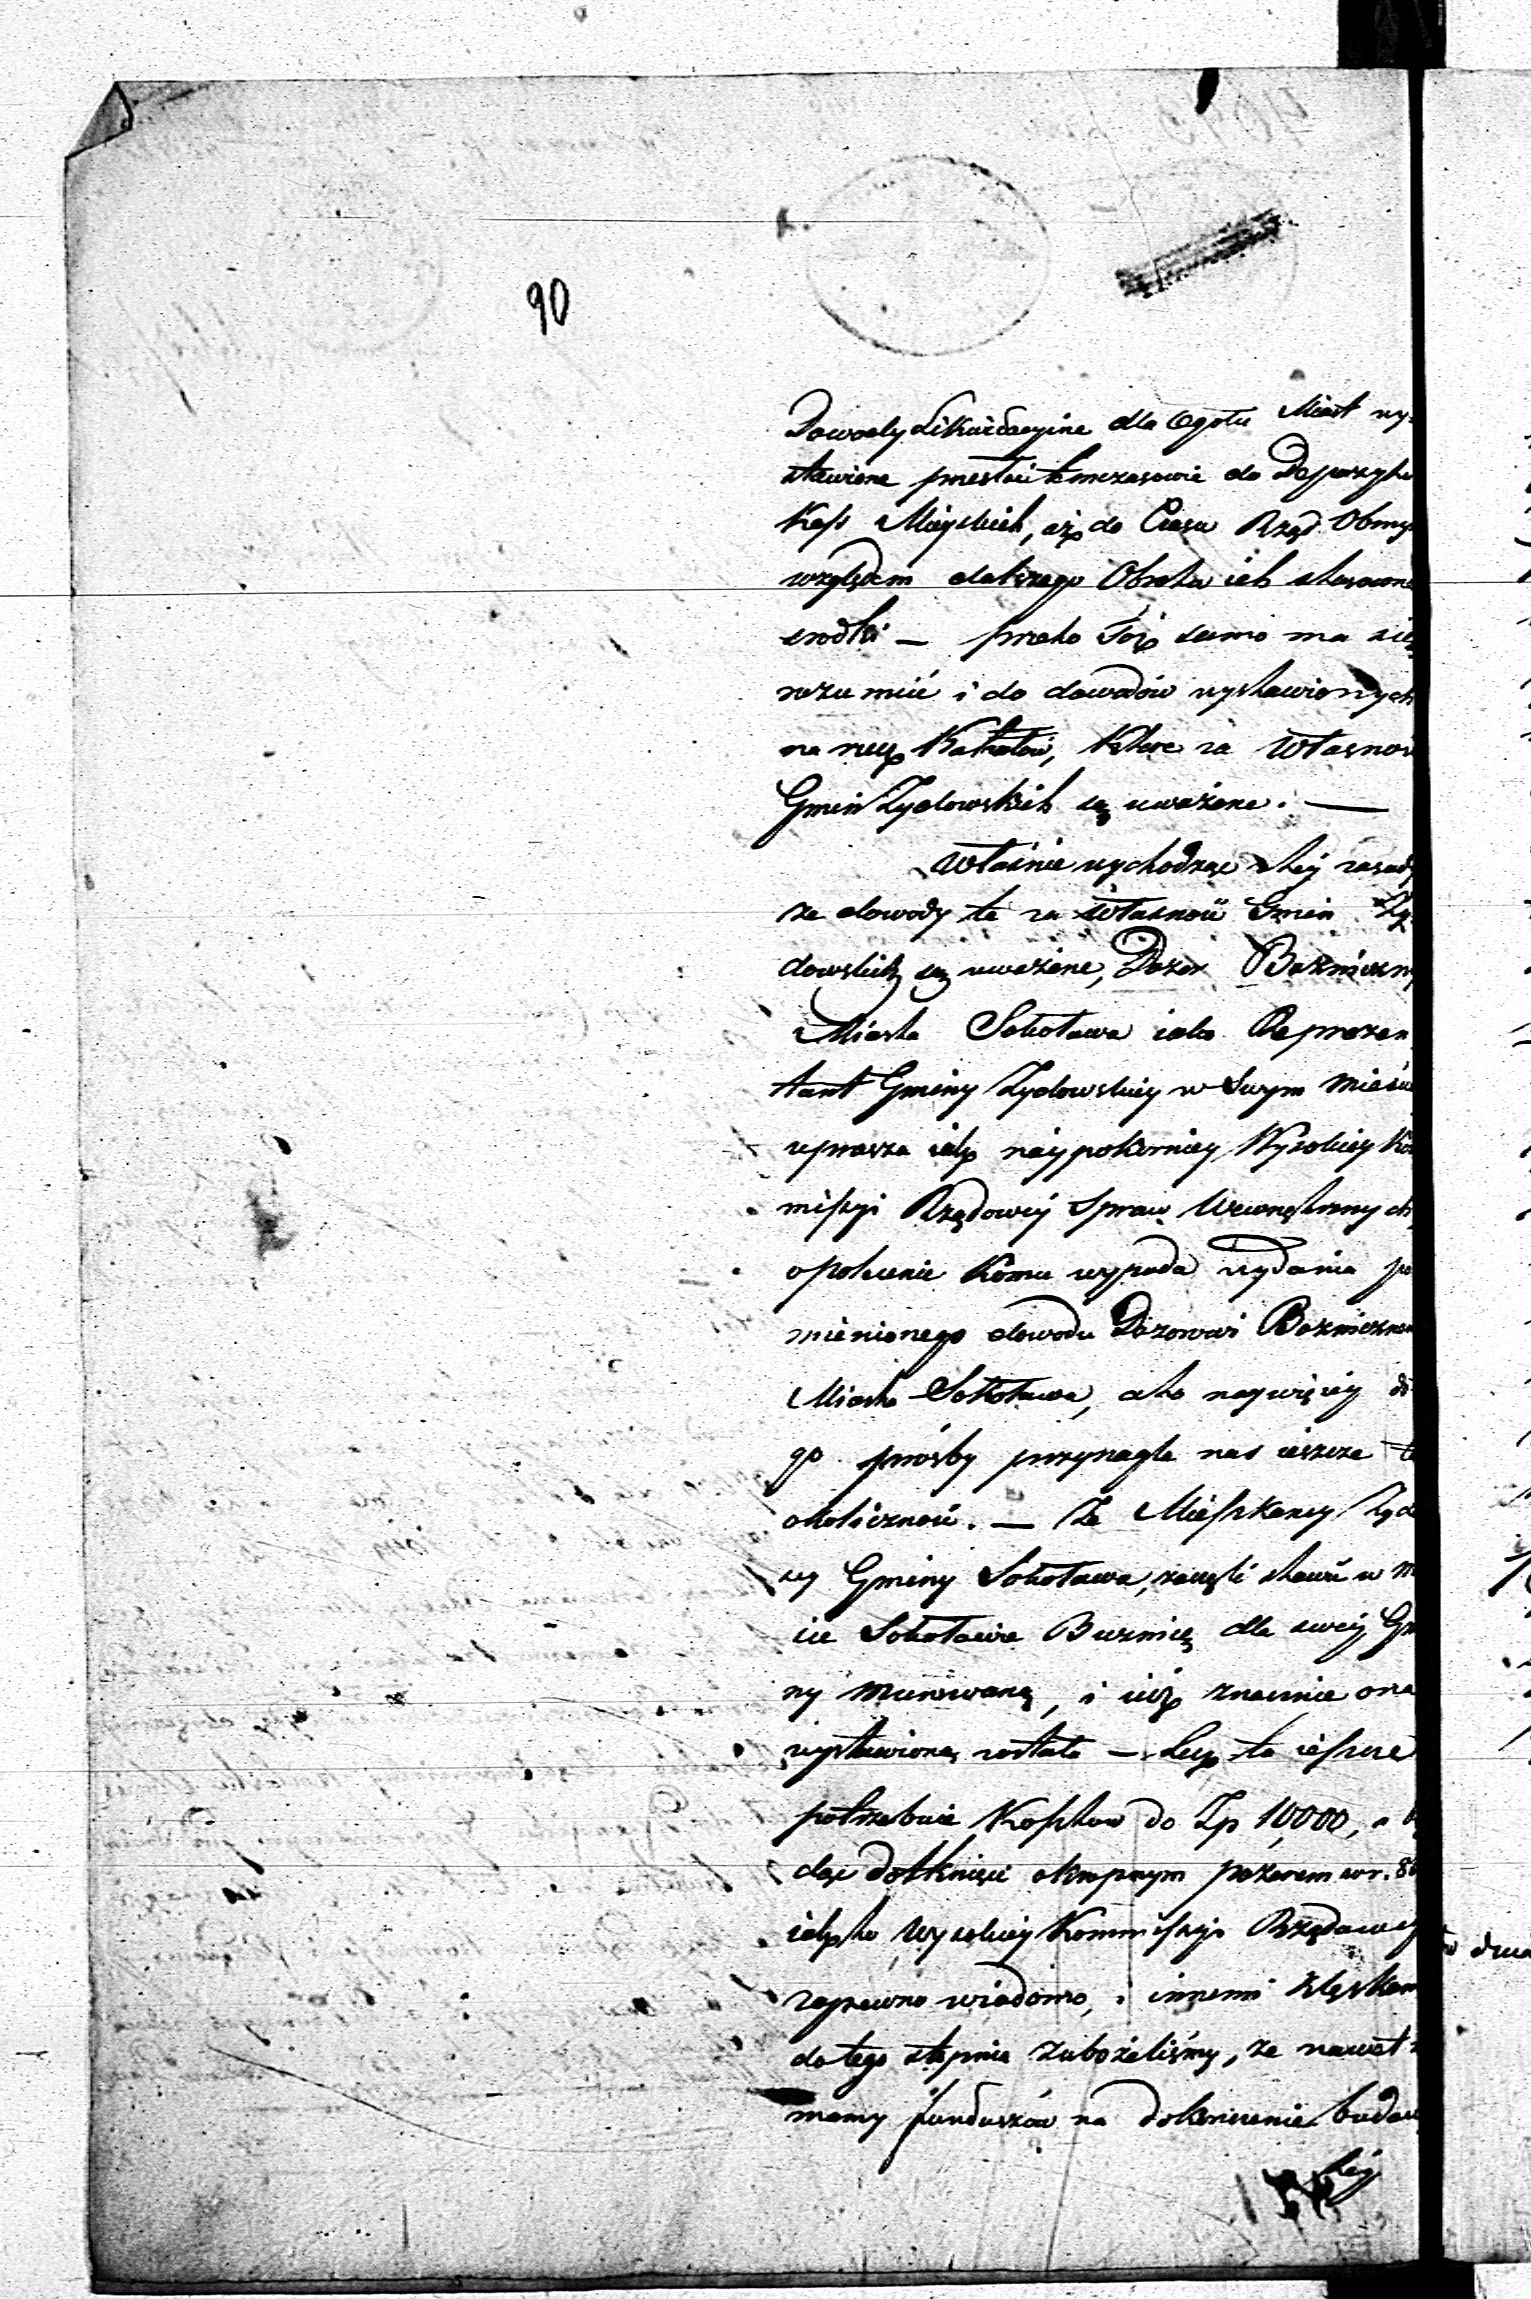 90
Dowody Likwidacyine dla Ogołu Miast wy-
stawione przesłać tymczasowie do Depozytu
Kass Mieyskich, aż do Czasu Rząd Obmy
względem dalszego Obrotu ich stosowne
srodki — przeto Toż samo ma się
rozumić i do dowodów wystawionych
na rzecz Kahałów, Które za Własność
Gmin Żydowskich są uważane. —
Właśnie wychodząc z tey zasady
ze dowody te za własność Gmin Ży-
dowskich są uważane, Dozor Bożniczny
Miasta Sokołowa iako Reprezen
tant Gminy Żydowskiey w Swym mieście
uprasza iak naypokorniey Wysokiey Ko
missyi Rządowey Spraw Wewnętrznych
o polecenie Komu wypada wydania po
mienionego dowodu Dozorowi Bożniczne
Miasta Sokołowa, a to naywięcey do
go prośby przynagla nas ieszcze ta
okoliczność. — Że Mieszkancy Żydo
scy Gminy Sokołowa, zaczęli stawić w m
cie Sokołowie Buznicę dla swey Gmi
ny murowaną, i iuż znacznie ona
wystawioną została — Lecz ta ieszcze
potrzebuie Kosztow do Zp 10,000, a b
dąc dotknięci okropnym pożarem w r. 8
iak to Wysokiey Kommissyi Rządowey
zapewno wiadomo, i innemi klęskam
do tego stopnia zubożeliśmy, że nawet n
mamy funduszów na dokończenie budow
tey